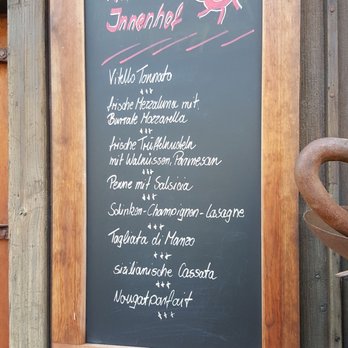 Innenhof
Vitello Tonnato
***
frische Mezzaluna mit
Burrata Mozzarella
***
frische Trüffelnudeln
mit Walnüssen, Parmesan
***
Penne mit Salsicia
***
Schinken-Champignon-Lasagne
***
Tagliata di Manzo
***
sizilianische Cassata
***
Nougatparfait
***